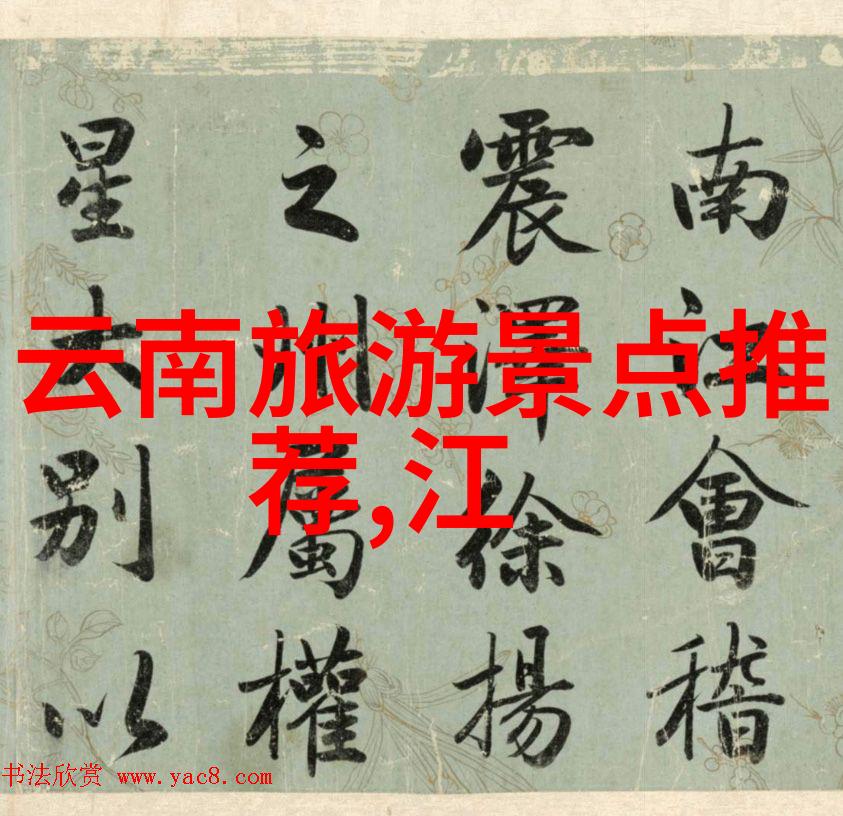 云南旅游景点推
荐,江
南江會稽
震澤徐揚
之州屬權
星別以
书法欣赏 www.yac8.com